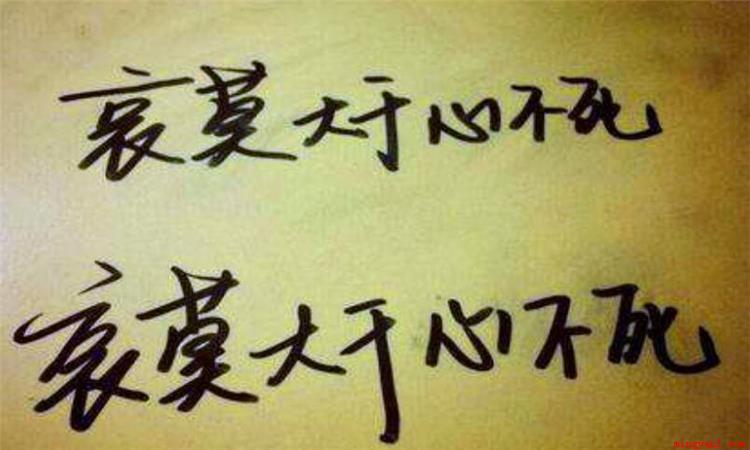 哀莫大于心不死
哀莫大于心不死